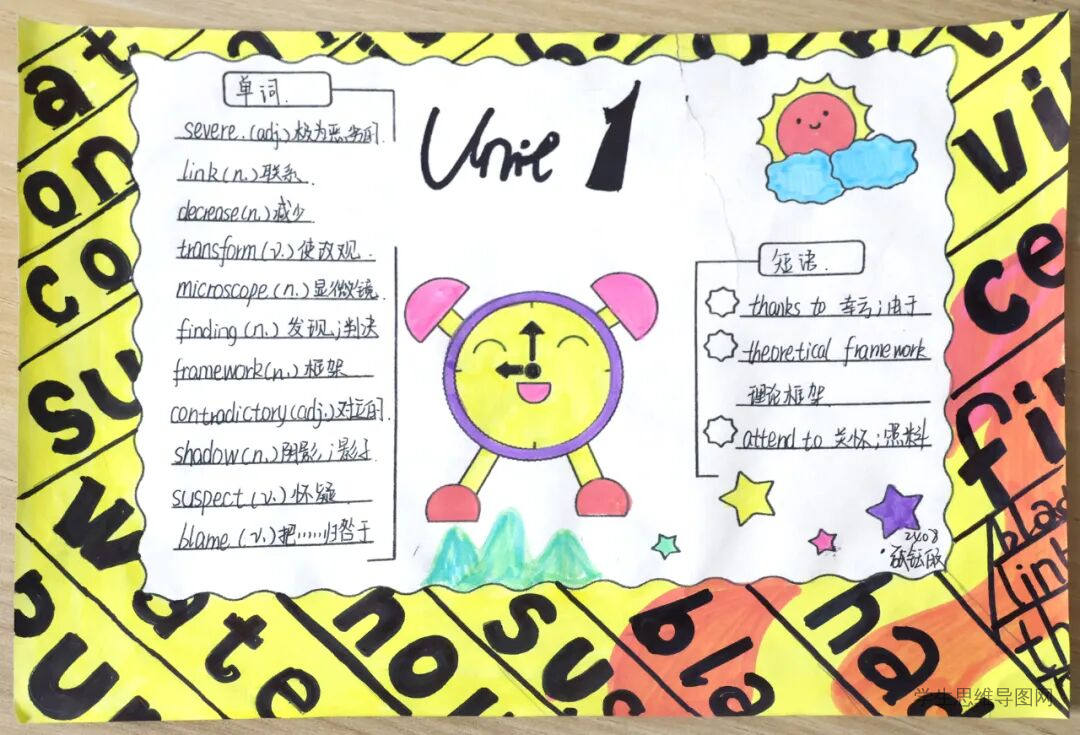 Unit 1
单词.
severe.(adj.)极为恶劣的.
link(n.)联系.
decrease(n.)减少
transform(v.)使改观.
microscope.(n.)显微镜.
finding(n.)发现;判决
framework(n.)框架
contradictory(adj.)对立的.
shadow(n.)阴影;影子.
suspect(v.)怀疑
blame.(v.)把……归咎于
短语.
thanks to 幸亏;由于
theoretical framework
理论框架.
attend to 关怀;照料
24.08
at
on
co
su
w
ate
nou
sus
bla
ha
vi
ce
fin
blac
link
th
学生思维导图网